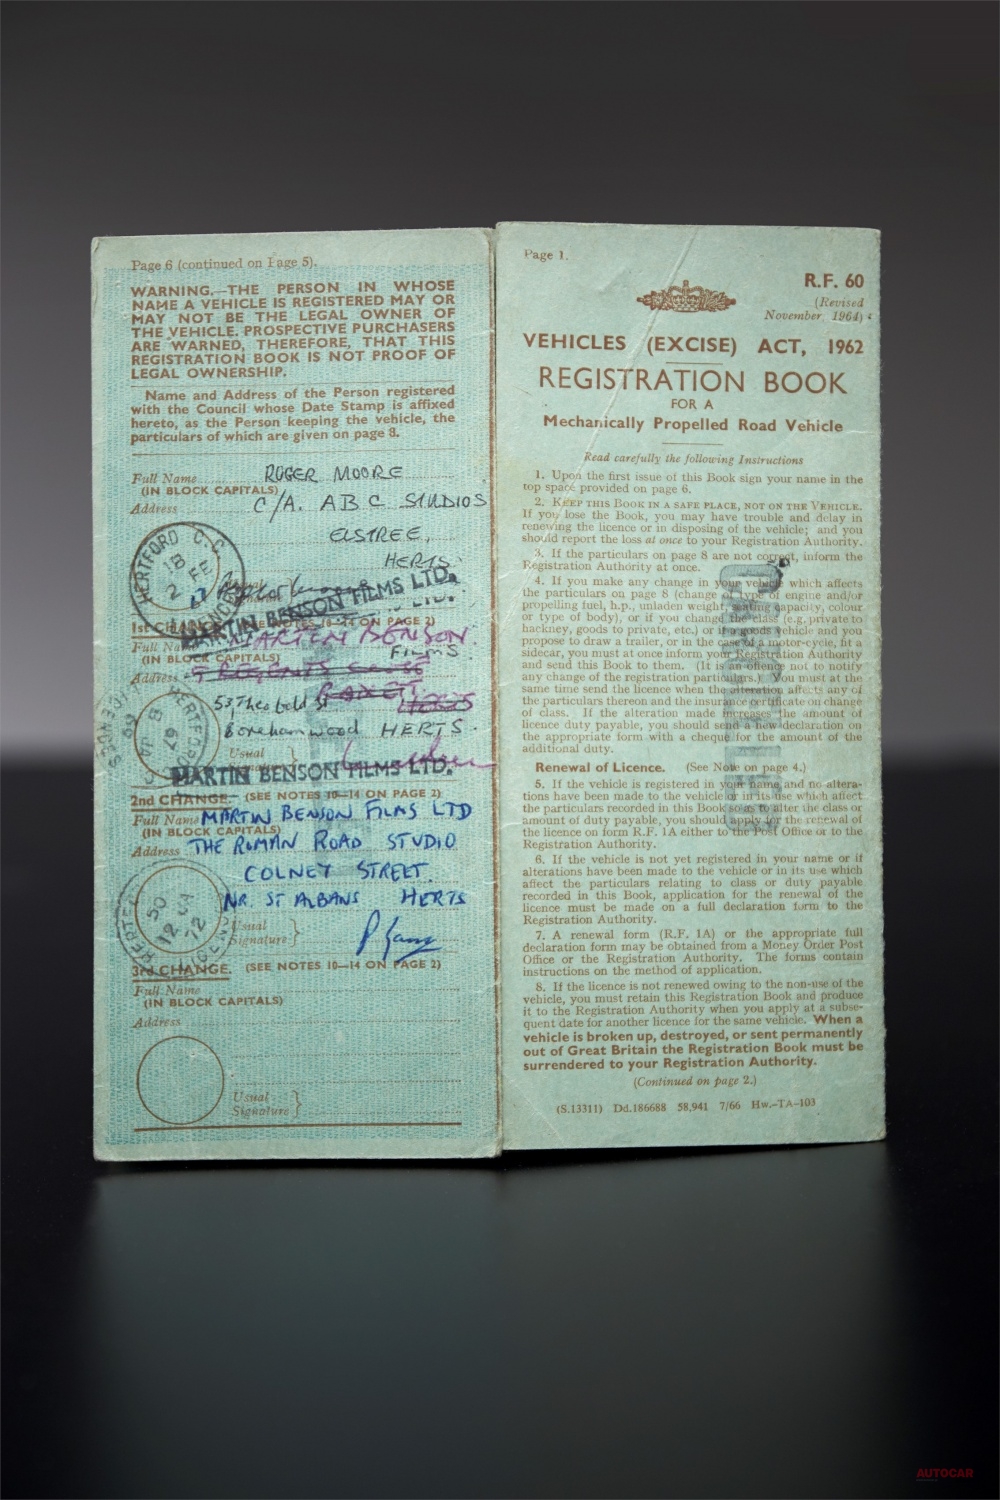 Page 6 (continued on Page 5).
WARNING.—THE PERSON IN WHOSE
NAME A VEHICLE IS REGISTERED MAY OR
MAY NOT BE THE LEGAL OWNER OF
THE VEHICLE. PROSPECTIVE PURCHASERS
ARE WARNED, THEREFORE, THAT THIS
REGISTRATION BOOK IS NOT PROOF OF
LEGAL OWNERSHIP.
Name and Address of the Person registered
with the Council whose Date Stamp is affixed
hereto, as the Person keeping the vehicle, the
particulars of which are given on page 8.
Full Name ROGER MOORE
(IN BLOCK CAPITALS)
Address C/A. ABC STUDIOS
ELSTREE,
HERTS.
HERTFORD C.C.
18
2 FE
67
MARTIN BENSON FILMS LTD.
1st CHANGE. (SEE NOTES 10—14 ON PAGE 2)
Full Name MARTIN BENSON
FILMS
(IN BLOCK CAPITALS)
Address
53, Theobald St
Borehamwood HERTS.
Usual
MARTIN BENSON FILMS LTD.
2nd CHANGE. (SEE NOTES 10—14 ON PAGE 2)
Full Name MARTIN BENSON FILMS LTD
(IN BLOCK CAPITALS)
Address THE ROMAN ROAD STUDIO
COLNEY STREET.
NR. ST ALBANS HERTS
Usual
Signature
3rd CHANGE. (SEE NOTES 10—14 ON PAGE 2)
Full Name
(IN BLOCK CAPITALS)
Address
Usual
Signature
Page 1.
R.F. 60
(Revised
November, 1964)
VEHICLES (EXCISE) ACT, 1962
REGISTRATION BOOK
FOR A
Mechanically Propelled Road Vehicle
Read carefully the following Instructions
1. Upon the first issue of this Book sign your name in the
top space provided on page 6.
2. KEEP THIS BOOK IN A SAFE PLACE, NOT ON THE VEHICLE.
If you lose the Book, you may have trouble and delay in
renewing the licence or in disposing of the vehicle; and you
should report the loss at once to your Registration Authority.
3. If the particulars on page 8 are not correct, inform the
Registration Authority at once.
4. If you make any change in your vehicle which affects
the particulars on page 8 (change of type of engine and/or
propelling fuel, h.p., unladen weight, seating capacity, colour
or type of body), or if you change the class (e.g. private to
hackney, goods to private, etc.) or if a goods vehicle and you
propose to draw a trailer, or in the case of a motor-cycle, fit a
sidecar, you must at once inform your Registration Authority
and send this Book to them. (It is an offence not to notify
any change of the registration particulars.) You must at the
same time send the licence when the alteration affects any of
the particulars thereon and the insurance certificate on change
of class. If the alteration made increases the amount of
licence duty payable, you should send a new declaration on
the appropriate form with a cheque for the amount of the
additional duty.
Renewal of Licence. (See Note on page 4.)
5. If the vehicle is registered in your name and no altera-
tions have been made to the vehicle or in its use which affect
the particulars recorded in this Book so as to alter the class or
amount of duty payable, you should apply for the renewal of
the licence on form R.F. 1A either to the Post Office or to the
Registration Authority.
6. If the vehicle is not yet registered in your name or if
alterations have been made to the vehicle or in its use which
affect the particulars relating to class or duty payable
recorded in this Book, application for the renewal of the
licence must be made on a full declaration form to the
Registration Authority.
7. A renewal form (R.F. 1A) or the appropriate full
declaration form may be obtained from a Money Order Post
Office or the Registration Authority. The forms contain
instructions on the method of application.
8. If the licence is not renewed owing to the non-use of the
vehicle, you must retain this Registration Book and produce
it to the Registration Authority when you apply at a subse-
quent date for another licence for the same vehicle. When a
vehicle is broken up, destroyed, or sent permanently
out of Great Britain the Registration Book must be
surrendered to your Registration Authority.
(Continued on page 2.)
(S.13311) Dd.186688 58,941 7/66 Hw.–TA–103
AUTOCAR